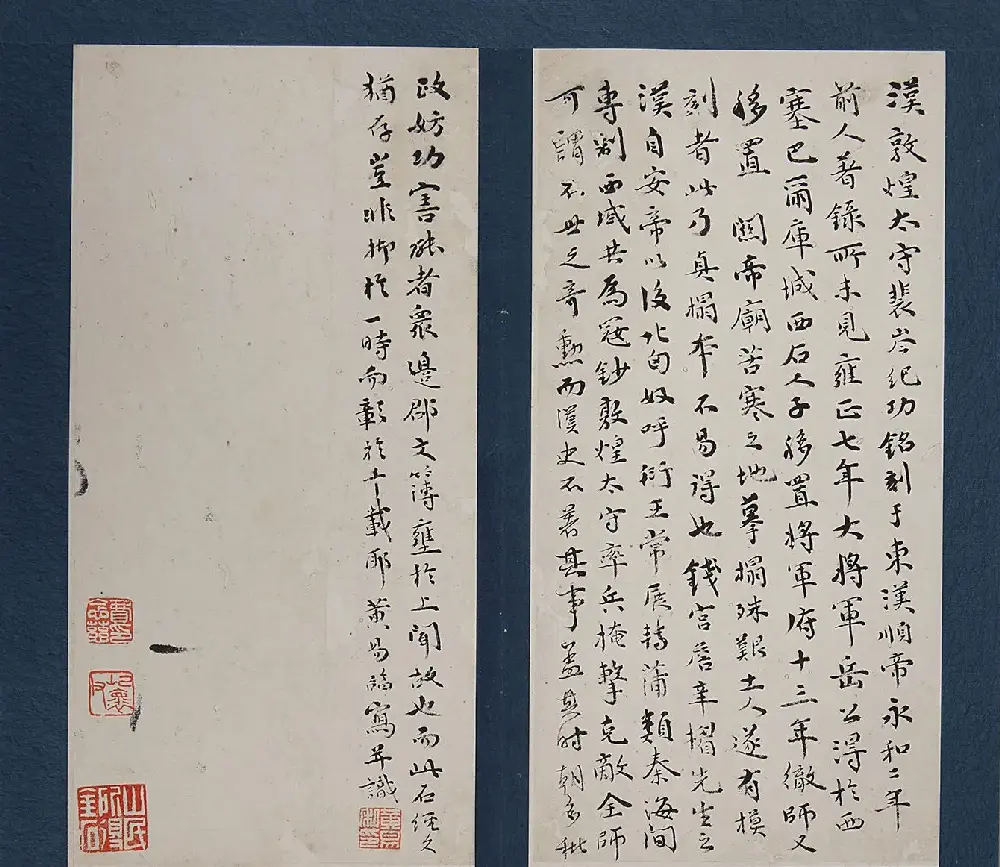 漢敦煌太守裴岑紀功銘刻于東漢順帝永和二年
前人著錄所未見雍正七年大將軍岳公得於西
塞巴爾庫城西石人子移置將軍府十三年徹師又
移置 關帝廟苦寒之地摹搨殊艱土人遂有模
刻者此乃真搨本不易得也錢宮詹辛楣先生云
漢自安帝以後北匈奴呼衍王常展轉蒲類秦海間
專制西域共為寇鈔敦煌太守率兵掩擊克敵全師
可謂不世之奇勳而漢史不著其事蓋其時朝多秕
政妨功害能者衆邊郡文簿壅於上聞故也而此石經久
猶存豈非抑於一時而彰於千載耶 黃易臨寫并識